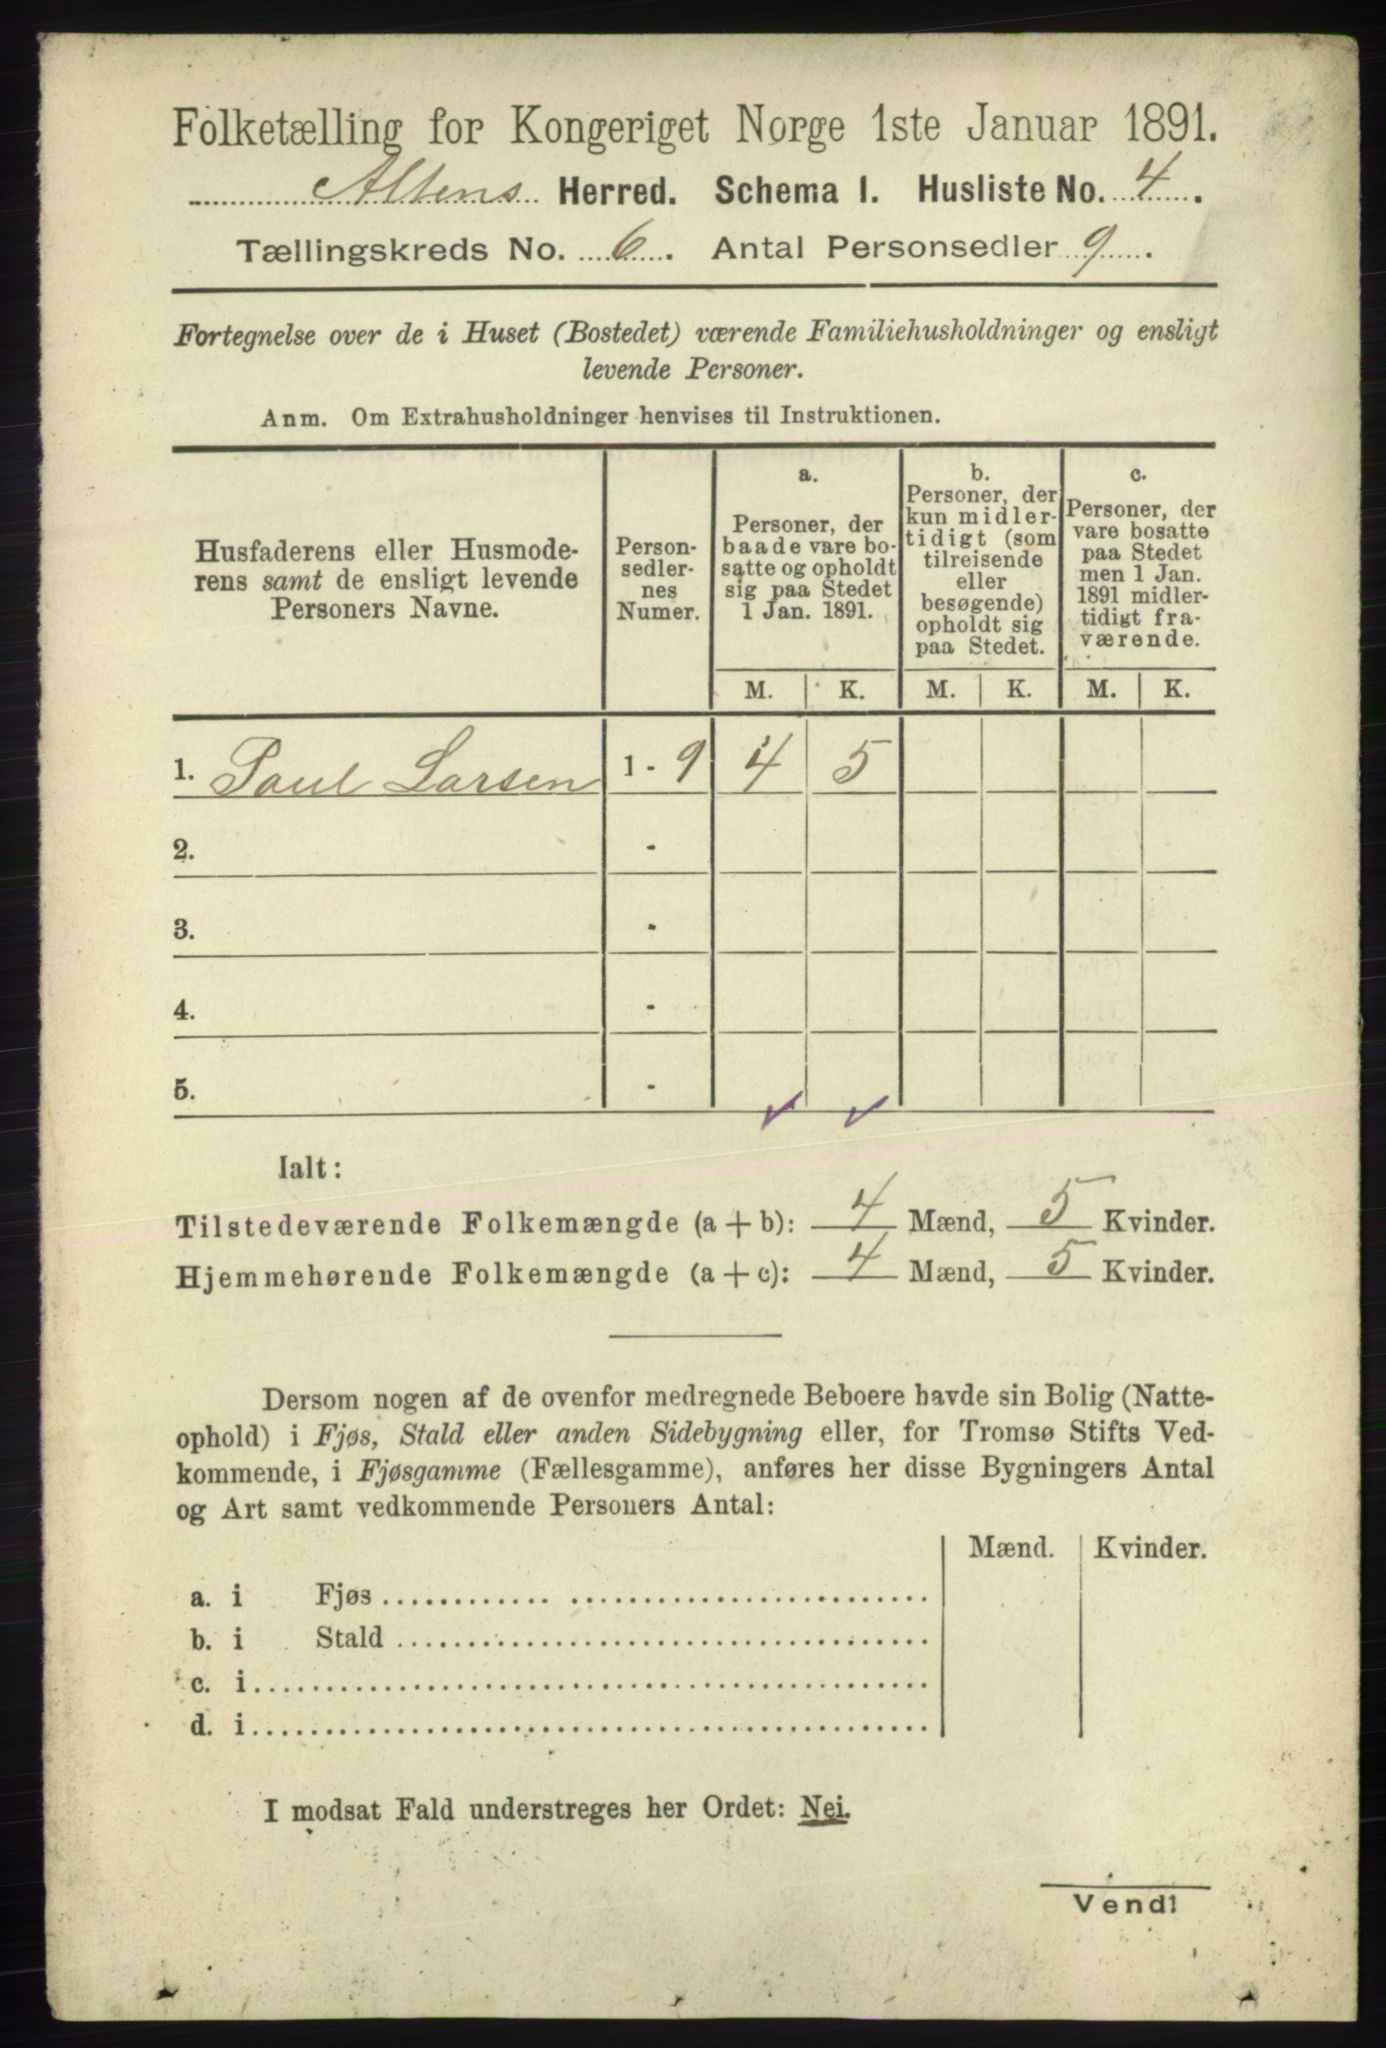 Folketælling for Kongeriget Norge 1ste Januar 1891.
Altens Herred. Schema I. Husliste No. 4.
Tællingskreds No. 6. Antal Personsedler 9.
Fortegnelse over de i Huset (Bostedet) værende Familiehusholdninger og ensligt
levende Personer.
Anm. Om Extrahusholdninger henvises til Instruktionen.
Husfaderens eller Husmode-
rens samt de ensligt levende
Personers Navne.
Person-
sedler-
nes
Numer.
a.
Personer, der
baade vare bo-
satte og opholdt
sig paa Stedet
1 Jan. 1891.
b.
Personer, der
kun midler-
tidigt (som
tilreisende
eller
besøgende)
opholdt sig
paa Stedet.
c.
Personer, der
vare bosatte
paa Stedet
men 1 Jan.
1891 midler-
tidigt fra-
værende.
M. K. M. K. M. K.
1. Paul Larsen 1 - 9 4 5
2. -
3. -
4. -
5. -
Ialt:
Tilstedeværende Folkemængde (a + b): 4 Mænd, 5 Kvinder.
Hjemmehørende Folkemængde (a + c): 4 Mænd, 5 Kvinder.
Dersom nogen af de ovenfor medregnede Beboere havde sin Bolig (Natte-
ophold) i Fjøs, Stald eller anden Sidebygning eller, for Tromsø Stifts Ved-
kommende, i Fjøsgamme (Fællesgamme), anføres her disse Bygningers Antal
og Art samt vedkommende Personers Antal:
Mænd. Kvinder.
a. i Fjøs
b. i Stald
c. i
d. i
I modsat Fald understreges her Ordet: Nei.
Vend!